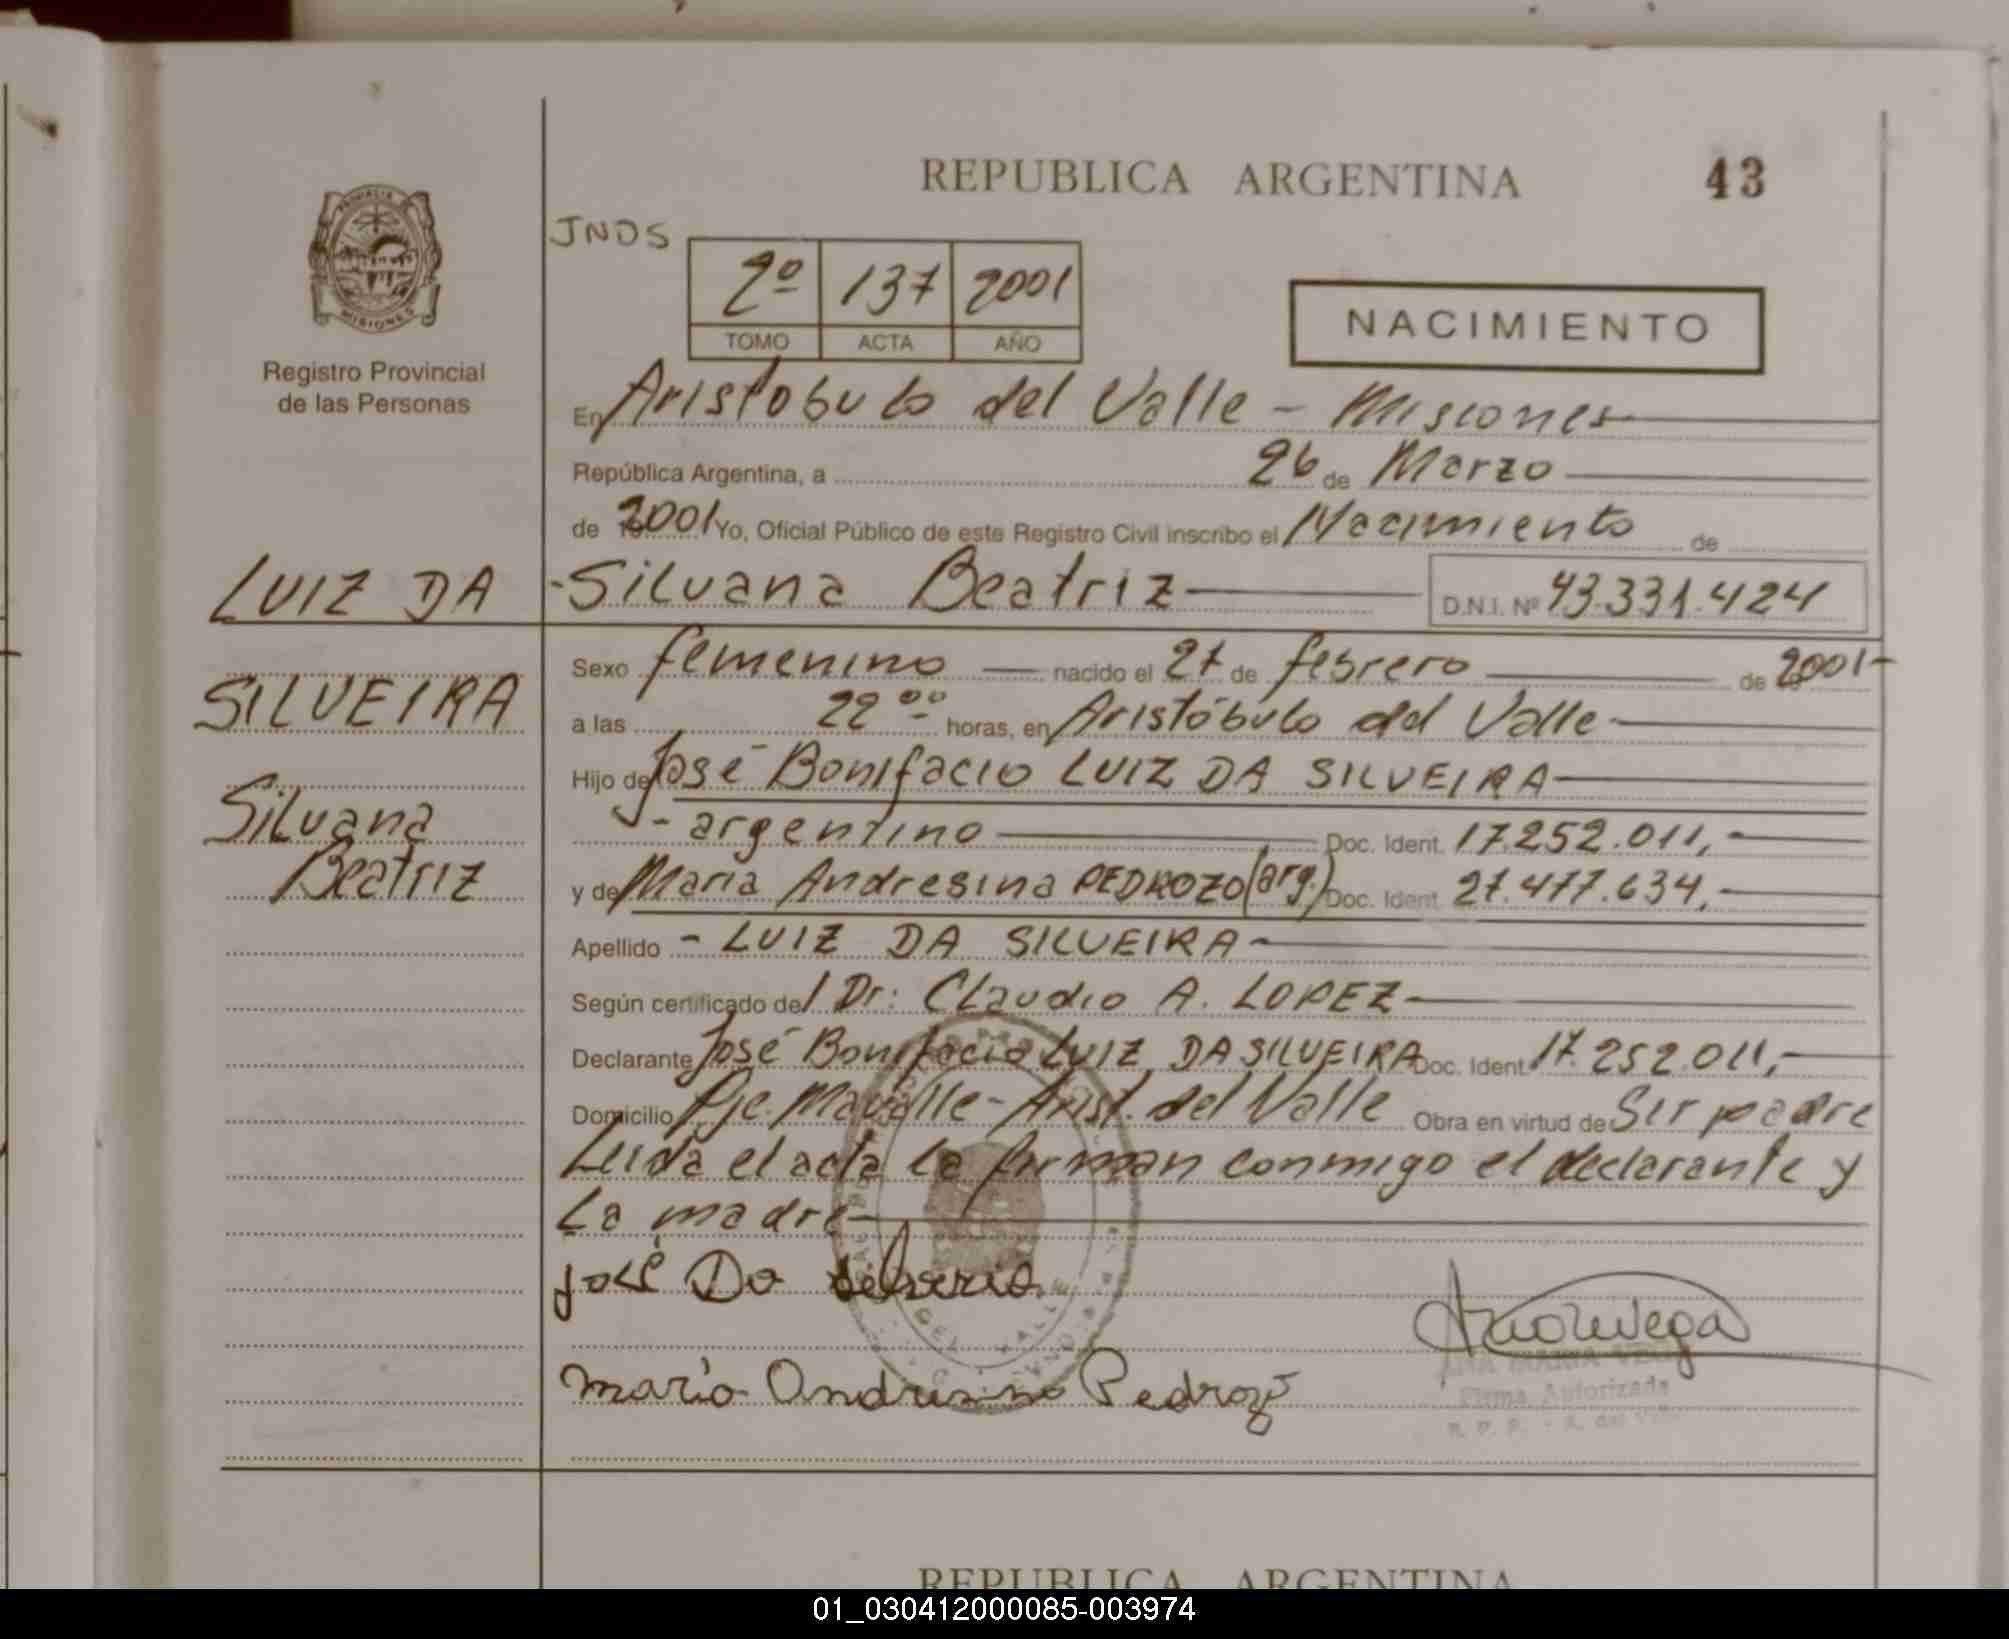 REPUBLICA ARGENTINA
43
PROVINCIA DE
MISIONES
Registro Provincial
de las Personas
JNDS
2º 137 2001
TOMO ACTA AÑO
NACIMIENTO
En Aristobulo del Valle - Misiones
República Argentina, a 26 de Marzo
de 2001 Yo, Oficial Público de este Registro Civil inscribo el Nacimiento de
LUIZ DA
- Silvana Beatriz D.N.I. Nº 43.331.424
SILVEIRA
Silvana
Beatriz
Sexo femenino nacido el 27 de febrero de 2001-
a las 22 ºº horas, en Aristóbulo del Valle
Hijo de José Bonifacio LUIZ DA SILVEIRA
- argentino Doc. Ident. 17.252.011,-
y de Maria Andresina PEDROZO (arg.) Doc. Ident. 27.477.634,-
Apellido - LUIZ DA SILVEIRA -
Según certificado del Dr: Claudio A. LOPEZ
Declarante José Bonifacio LUIZ DA SILVEIRA Doc. Ident. 17.252.011,-
Domicilio Pje. Mavalle - Arist. del Valle Obra en virtud de Ser padre
Leida el acta la firman conmigo el declarante y
La madre
José Da
Maria Andresina Pedrozo
ANA MARIA VEGA
Firma Autorizada
R. P. P. - A. del Valle
REPUBLICA ARGENTINA
01_030412000085-003974